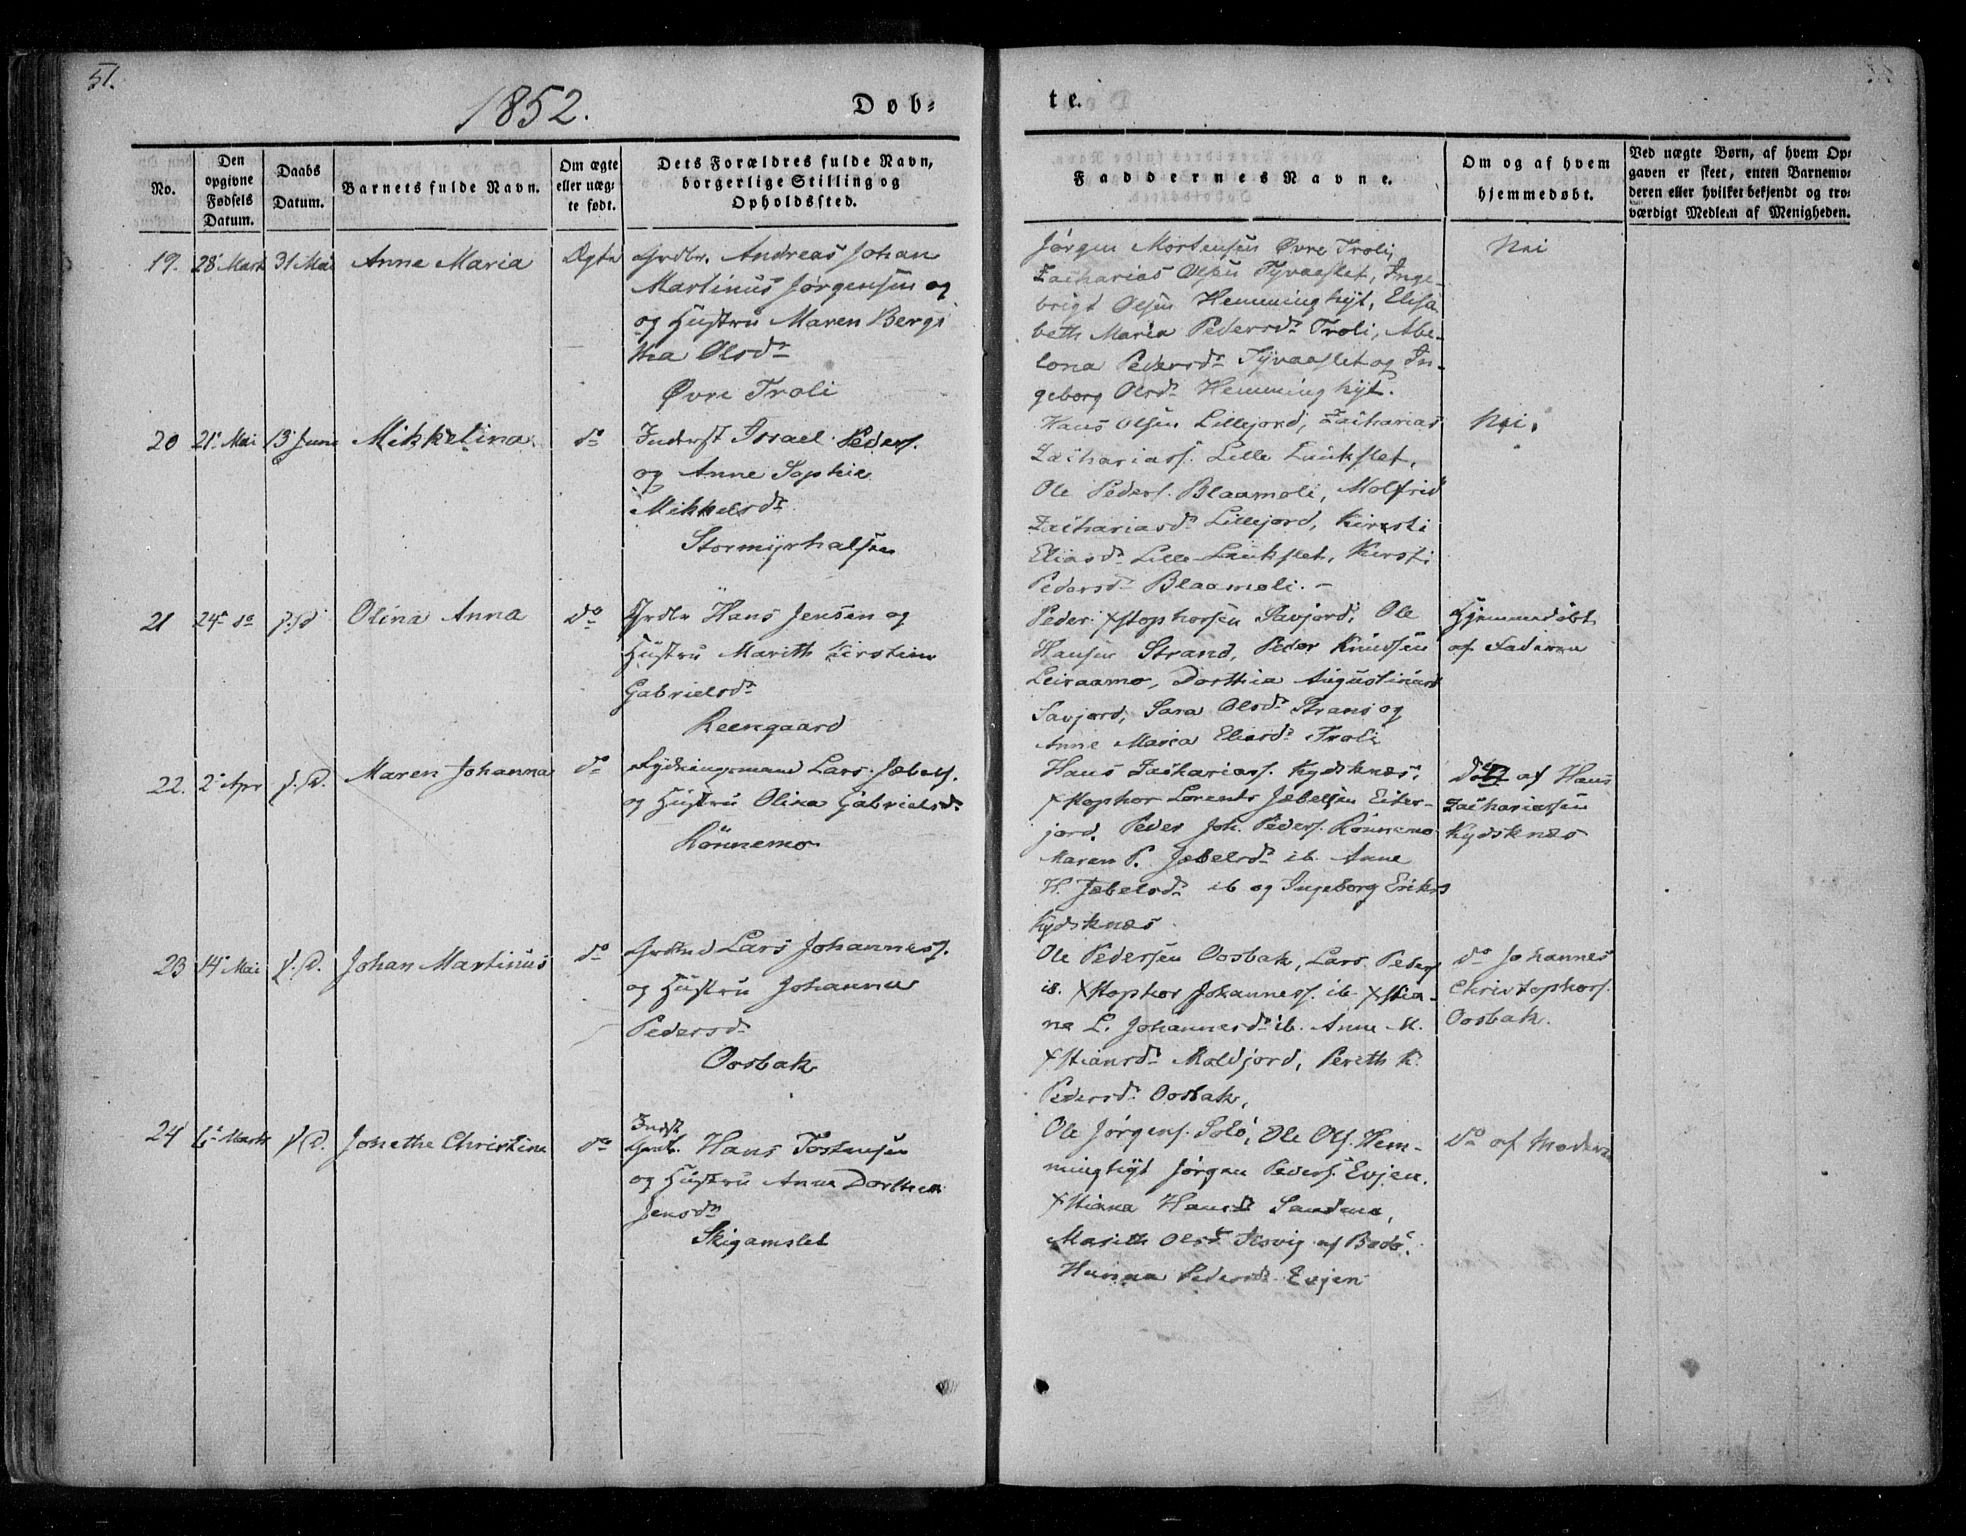 51.
1852.
Døb-
te.
No.
Den opgivne Fødsels Datum.
Daabs Datum.
Barnets fulde Navn.
Om ægte eller uægte født.
Dets Forældres fulde Navn, borgerlige Stilling og Opholdssted.
Faddernes Navne.
Om og af hvem hjemmedøbt.
Ved uægte Børn, af hvem Opgaven er skeet, enten Barnemoderen eller hvilket bekjendt og troværdigt Medlem af Menigheden.
19. 28 Marts 31 Mai Anne Maria Ægte
Grdbr. Andreas Johan
Martinus Jørgensen og
og Hustru Maren Bergi
tha Olsdr
Øvre Troli
Jørgen Mortensen Øvre Troli,
Zacharias Olsen Tyvaaslet, Inge-
brigt Olsen Hemminghyt, Elisa
beth Maria Pedersdr Troli, Abe-
lona Pedersdr Tyvaaslet og In-
geborg Olsdr Hemminghyt.
Nei
20 21 Mai 13 Juni Mikkelina do
Inderst Israel Peders.
og Anne Sophie
Mikkelsdr
Stormyrhalsen
Hans Olsen Lillejord, Zacharias
Zachariass. Lille Laukslet,
Ole Peders. Blaamoli, Molfrid
Zachariasdr Lillejord, Kirsti
Eliasdr Lille Laukslet, Kirsti
Pedersdr Blaamoli. -
Nei.
21 24 do s.D Olina Anna do
Grdbr Hans Jensen og
Hustru Marith Kirstine
Gabrielsdr
Reengaard
Peder Xstophersen Savjord, Ole
Hansen Strand, Peder Knudsen
Leiraamo, Dorthia Augustinusd
Savjord, Sara Olsdr Strand og
Anne Maria Eliasdr Troli
Hjemmedøbt
af Faderen
22. 2 Apr s.D. Maren Johanna do
Rydningsmand Lars Jæbels.
og Hustru Olina Gabrielsdr
Rönnemo
Hans Zachariass. Kydsknæs,
Xstophor Lorents Jæbelsen Eiter-
jord, Peder Joh. Peders. Rönnemo
Maren P. Jæbelsdr ib. Anne
H. Jæbelsdr ib og Ingeborg Eriks
Kydsknæs
do af Hans
Zachariassen
Kydsknæs
23 14 Mai s.D. Johan Martinus do
Grdmd Lars Johanness.
og Hustru Johanna
Pedersdr
Oosbak
Ole Pedersen Oosbak, Lars Peders
ib. Xstophor Johanness. ib. Xstia-
na L. Johannesdr ib. Anne M.
Xstiansdr Moldjord, Perith K.
Pedersdr Oosbak,
do Johannes
Christophors.
Oosbak.
24 6 Marts s.D. Jonethe Christine do
Indst
Grdb. Hans Tostensen
og Hustru Anne Dorthea
Jensdr
Skigamslet
Ole Jørgens. Solö, Ole Ols. Hem-
minghyt Jørgen Peders. Evjen.
Xstiana Hansd Sandmo,
Marith Olsd Nesvig af Bodö.
Hanna Pedersdr Evjen
do af Moderen